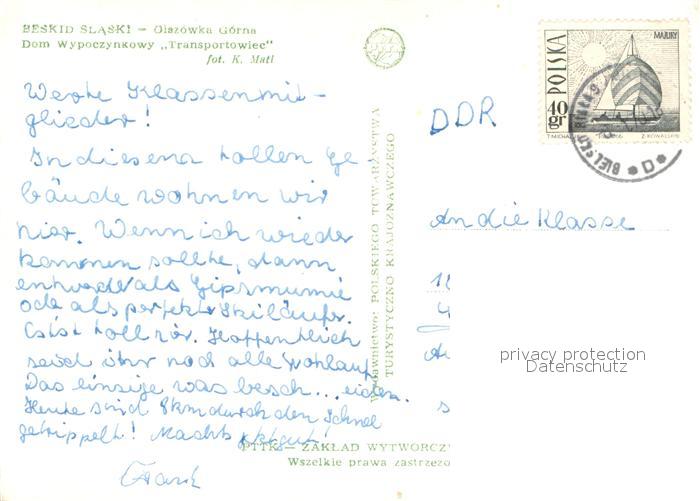 BESKID ŚLĄSKI — Olszówka Górna
Dom Wypoczynkowy „Transportowiec"
fot. K. Matl
POLSKA
MAJURY
40 gr
BIELSKO
D
Wydawnictwo: POLSKIEGO TOWARZYSTWA
TURYSTYCZNO KRAJOZNAWCZEGO
DDR
Werte Klassenmit-
glieder!
In diesem tollen Ge
bäude wohnen wir
hier. Wenn ich wieder
kommen sollte, dann
entweder als Gipsmumie
oder als perfekter Skiläufer.
Es ist toll hier. Hoffentlich
seid ihr noch alle wohlauf
Das einzige was
Heute sind 8km durch den Schnee
getrippelt! Machts gut!
An die Klasse
privacy protection
Datenschutz
PTTK — ZAKŁAD WYTWORCZ
Wszelkie prawa zastrzeżo